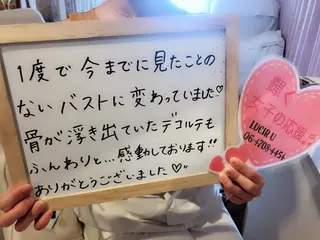 1度で今までに見たことの
ないバストに変わっていました♡
骨が浮き出ていたデコルテも
ふんわりと…感動しております!!
ありがとうございました♡
輝く
女子の応援
LUCIR U
06-4708-4454